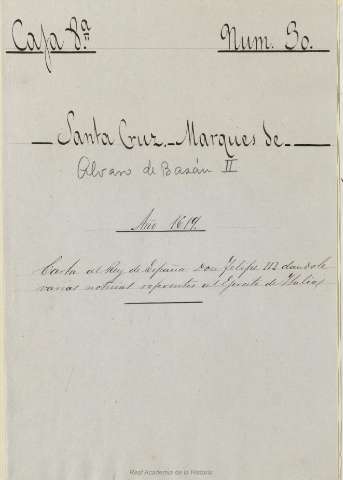 Caja 8.ª Num. 30.
Santa Cruz.- Marques de-
Alvaro de Basán II
Año 1619.
Carta al Rey de España Don Felipe III dandole
varias noticias referentes al Ejercito de Italia,
Real Academia de la Historia